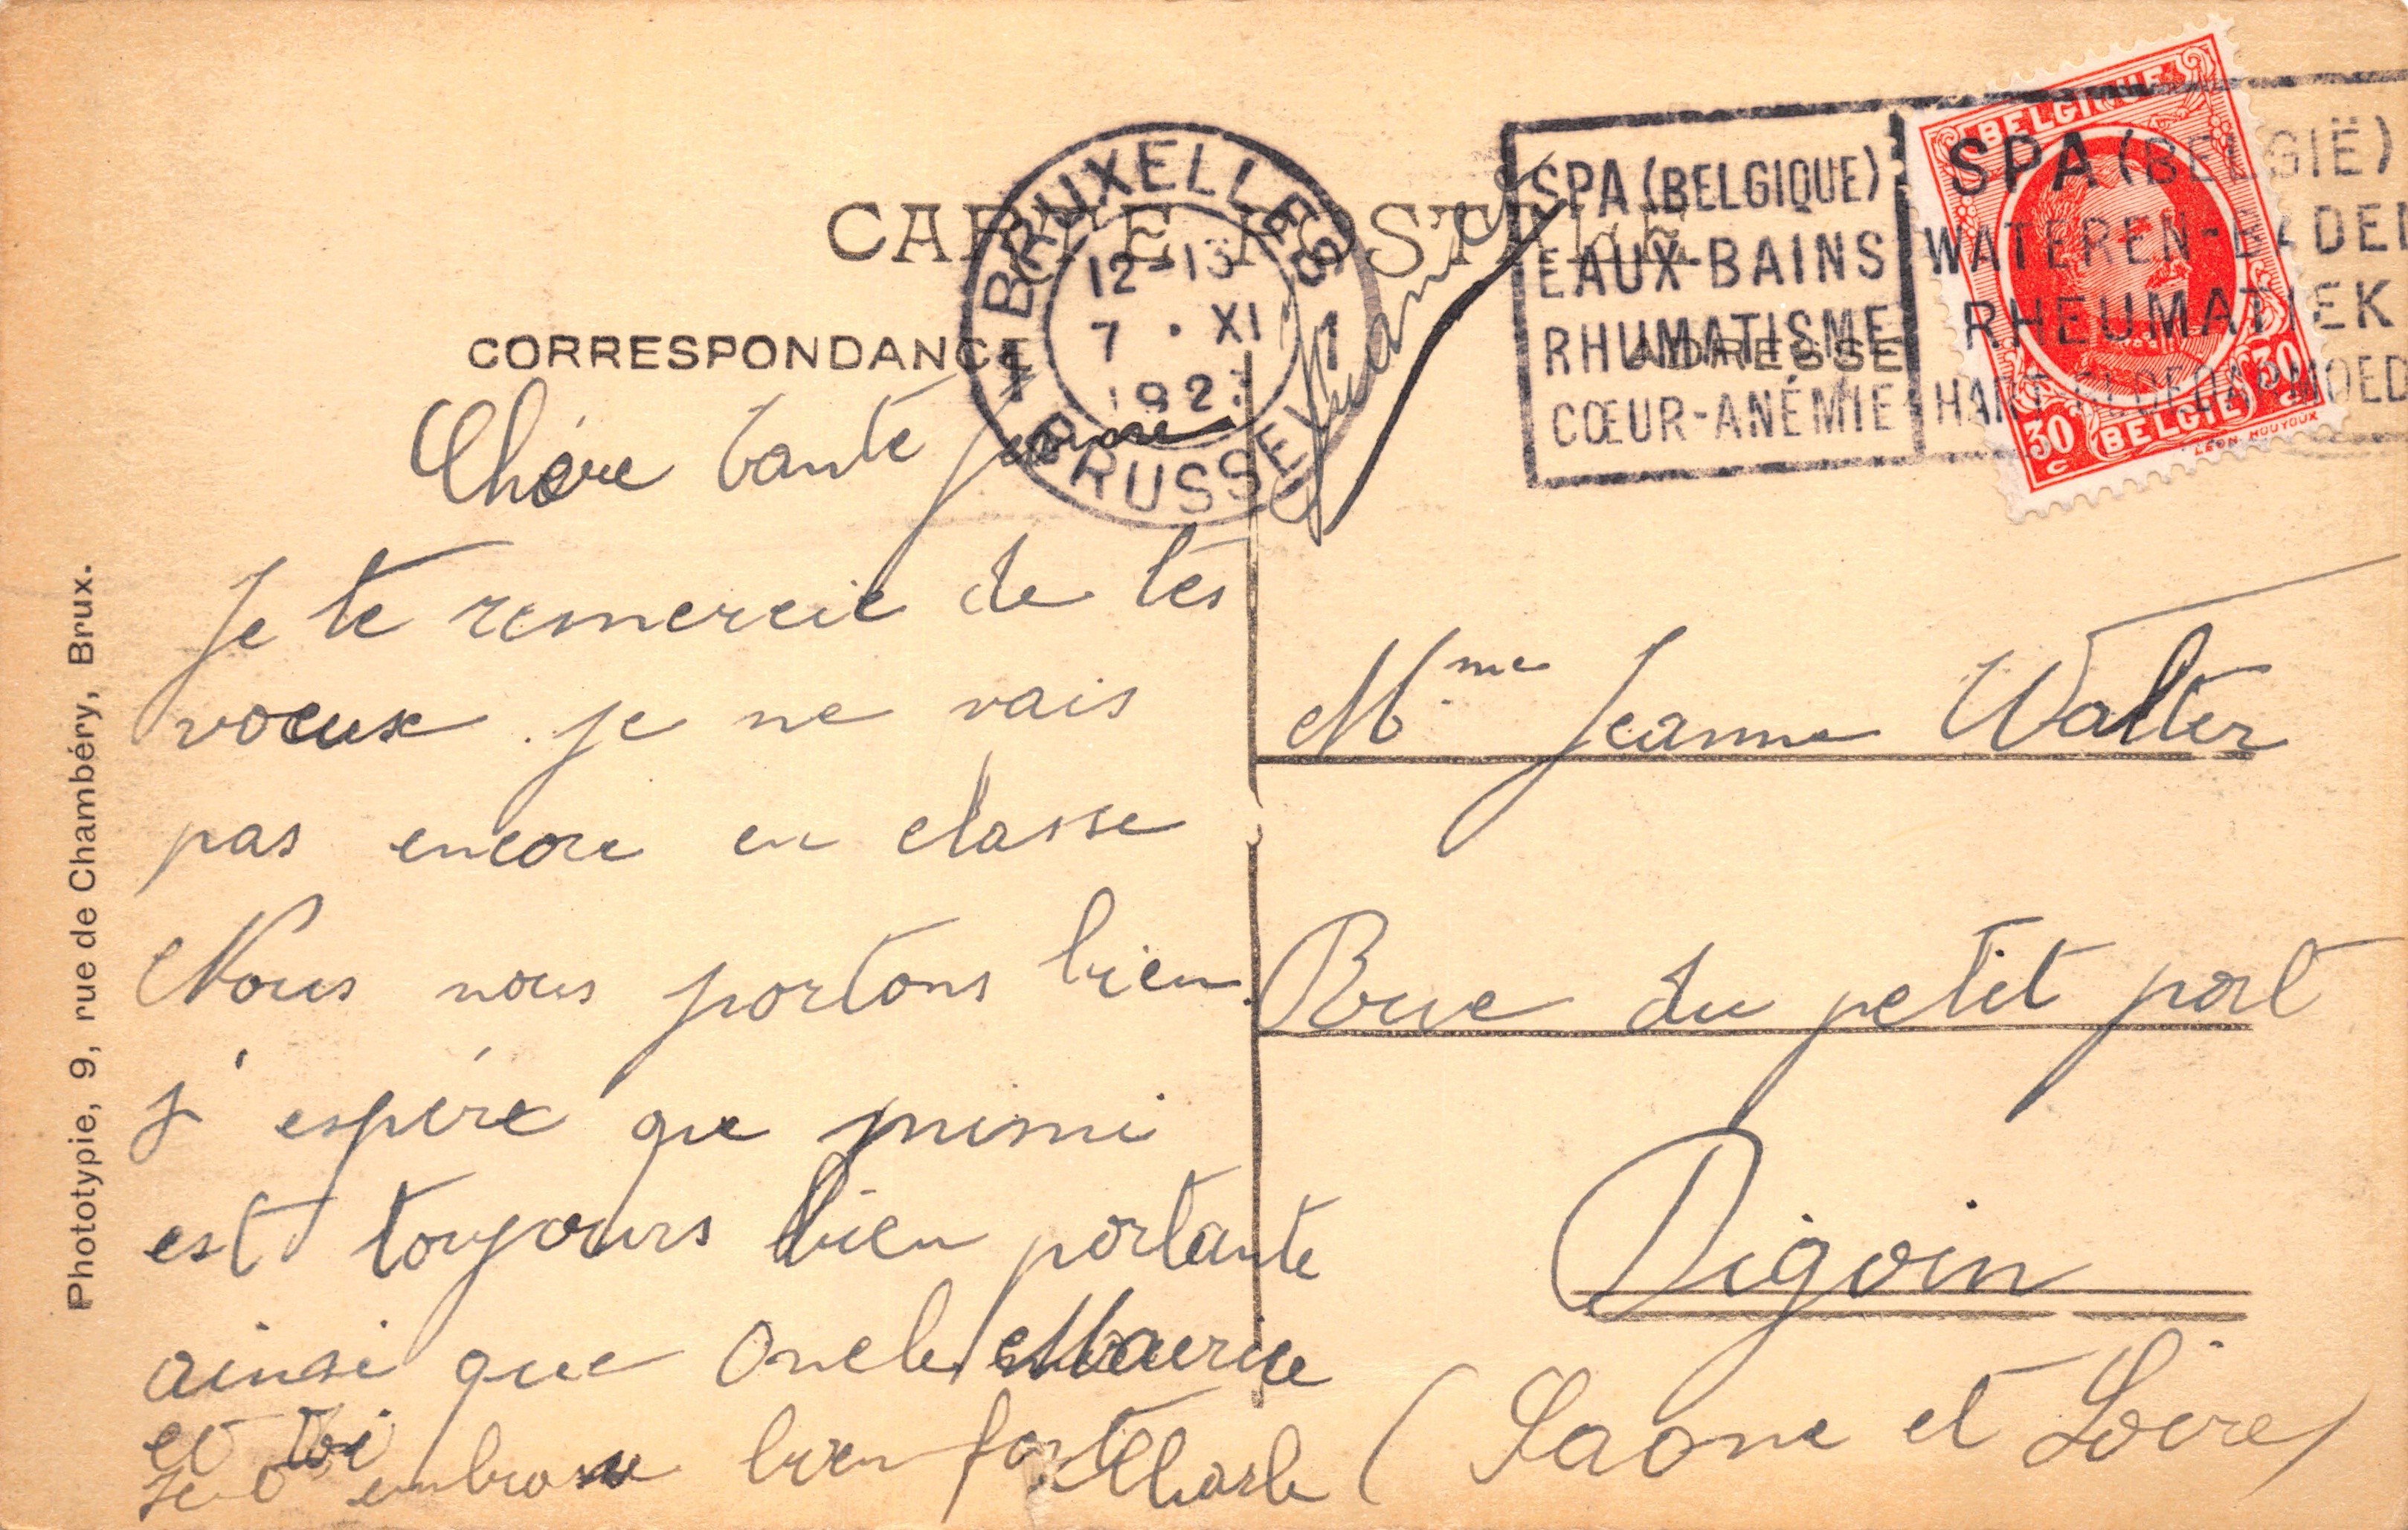 CARTE POSTALE
CORRESPONDANCE
ADRESSE
BRUXELLES 1
12-13
7 · XI
192
1 BRUSSEL
SPA (BELGIQUE)
EAUX-BAINS
RHUMATISME
CŒUR-ANÉMIE
SPA (BELGIË)
WATEREN-BADEN
RHEUMATIEK
HART-BLOEDARMOED
BELGIQUE
30 c BELGIË 30
LEON HOUYOUX
Phototypie, 9, rue de Chambéry, Brux.
Chère tante Jeanne
Je te remercie de tes
voeux je ne vais
pas encore en classe
Nous nous portons bien.
j'espère que mimi
est toujours bien portante
ainsi que Oncle Maurice
et toi
Je t'embrasse bien fort
Mme Jeanne Walter
Rue du petit port
Digoin
(Saone et Loire)